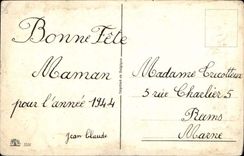 Bonne Fête
Maman
pour l'année 1944
Jean Claude
Madame Tricotteux
5 rue Charlier 5
Reims
Marne